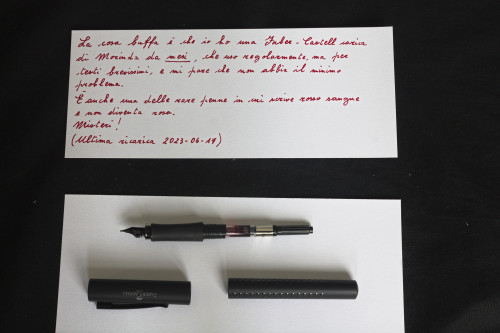 La cosa buffa è che io ho una Faber-Castell carica
di Morinda da mesi, che uso regolarmente, ma per
testi brevissimi, e mi pare che non abbia il minimo
problema.
È anche una delle rare penne in cui scrive rosso sangue
e non diventa rosa.
Misteri!
(Ultima ricarica 2023-06-19)